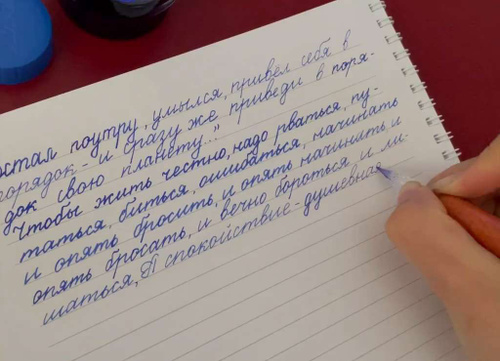 встал поутру, умылся, привёл себя в
порядок - и сразу же приведи в поря-
док свою планету..."
Чтобы жить честно, надо рваться, пу-
таться, биться, ошибаться, начинать
и опять бросить, и опять начинать, и
опять бросать, и вечно бороться, и ли-
шаться, А спокойствие - душевная